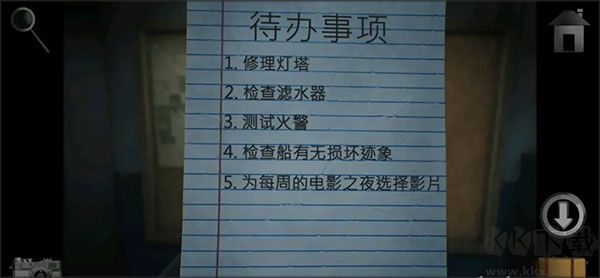 待办事项
1. 修理灯塔
2. 检查滤水器
3. 测试火警
4. 检查船有无损坏迹象
5. 为每周的电影之夜选择影片
KK下载
www.kkx